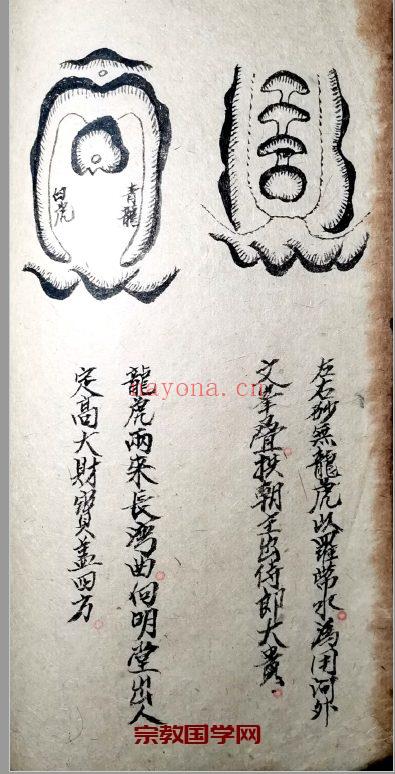 左右砂無龍虎以羅帶水為用河外
文峯聳拱朝主出待郎大貴
龍虎兩来長湾曲向明堂出人
定高大財寶盖四方
青龍
白虎
nayona.cn
宗教国学网